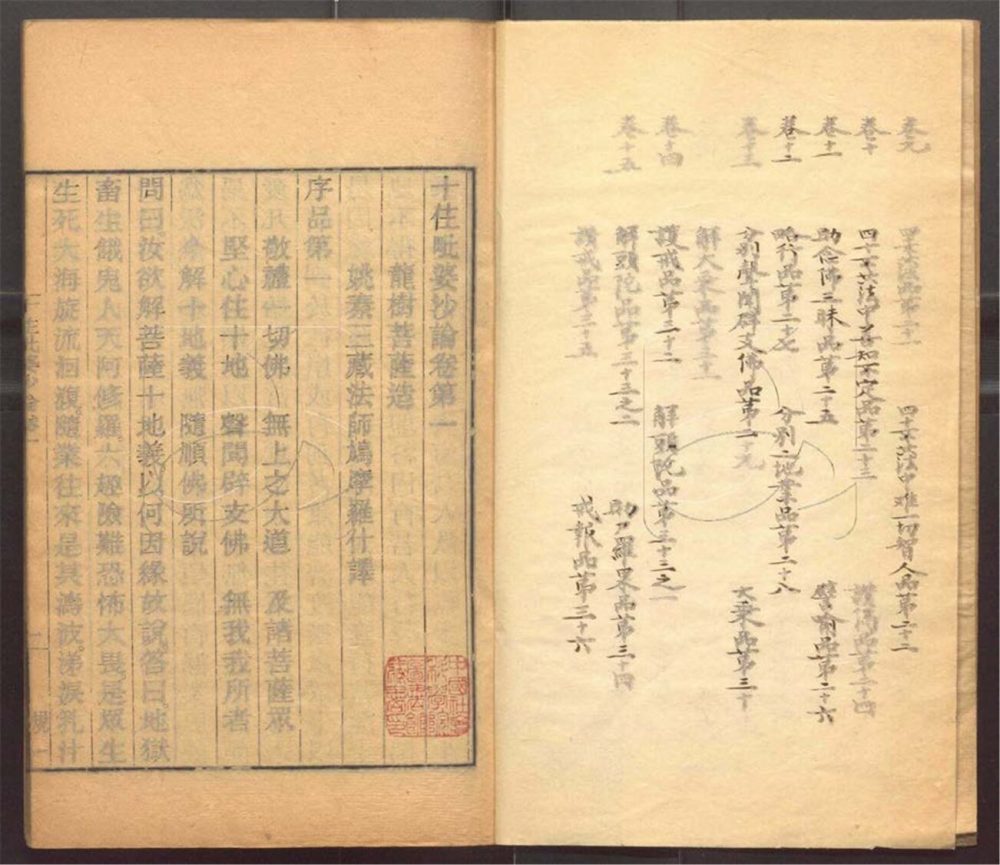 卷九 四十不共法品第二十一 四十不共法中难一切智人品第二十二
卷十 四十不共法中善知不定品第二十三 讚偈品第二十四
卷十一 助念佛三昧品第二十五 譬喻品第二十六
卷十二 略行品第二十七 分别二地業品第二十八
卷十三 分别聲聞辟支佛品第二十九 大乘品第三十
解大乘品第三十一
卷十四 護戒品第三十二 解頭陀品第三十三之一
卷十五 解頭陀品第三十三之二 助尸羅果品第三十四
讚戒品第三十五 戒報品第三十六
十住毗婆沙論卷第一
龍樹菩薩造
姚秦三藏法師鳩摩羅什譯
序品第一
敬禮一切佛 無上之大道 及諸菩薩眾
堅心住十地 聲聞辟支佛 無我我所者
今解十地義 隨順佛所說
問曰汝欲解菩薩十地義以何因緣故說答曰地獄
畜生餓鬼人天阿修羅六趣險難恐怖大畏是眾生
生死大海旋流洄澓隨業往來是其濤波涕淚乳汁